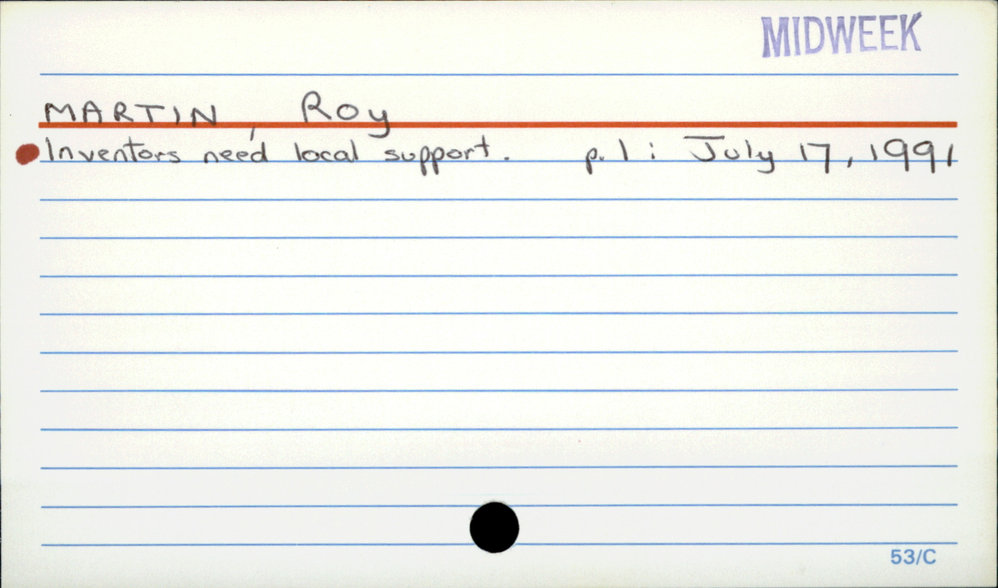 MIDWEEK
MARTIN, Roy
Inventors need local support. p. 1 : July 17, 1991
53/C